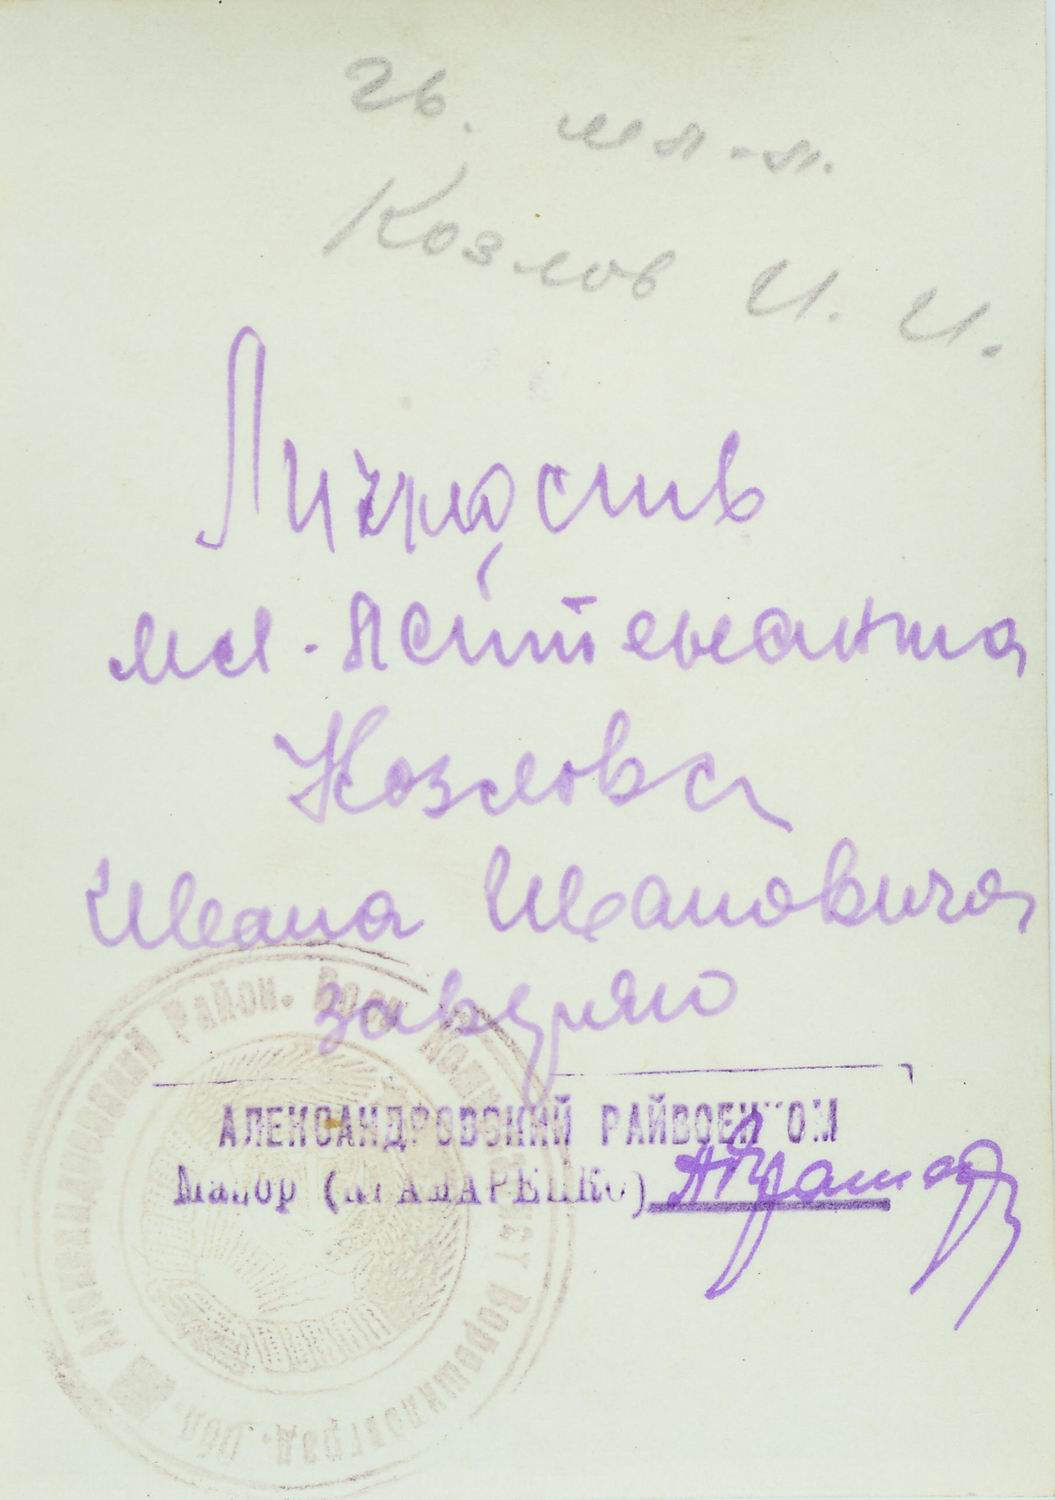 гв. мл.-л.
Козлов И. И.
Личность
мл. лейтенанта
Козлова
Ивана Ивановича
заверяю
АЛЕКСАНДРОВСКИЙ РАЙВОЕНКОМ
Майор
Александровский Район. Воен. Комиссариат Ворошиловград. обл.